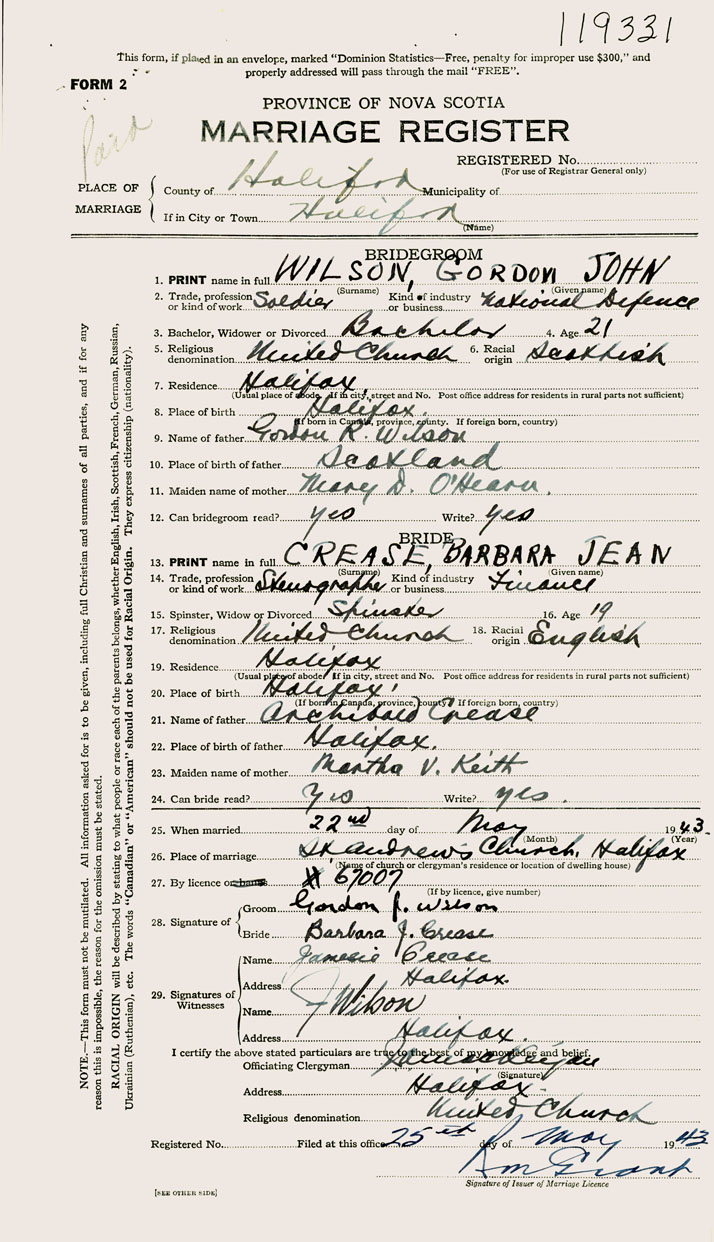 119331
This form, if placed in an envelope, marked "Dominion Statistics—Free, penalty for improper use $300," and
properly addressed will pass through the mail "FREE".
FORM 2
Paid
PROVINCE OF NOVA SCOTIA
MARRIAGE REGISTER
REGISTERED No.
(For use of Registrar General only)
PLACE OF MARRIAGE
County of Halifax Municipality of
If in City or Town Halifax
(Name)
BRIDEGROOM
1. PRINT name in full WILSON, GORDON JOHN
(Surname) (Given name)
2. Trade, profession or kind of work Soldier Kind of industry or business National Defence
3. Bachelor, Widower or Divorced Bachelor 4. Age 21
5. Religious denomination United Church 6. Racial origin Scottish
7. Residence Halifax
(Usual place of abode. If in city, street and No. Post office address for residents in rural parts not sufficient)
8. Place of birth Halifax.
(If born in Canada, province, county. If foreign born, country)
9. Name of father Gordon R. Wilson
10. Place of birth of father Scotland
11. Maiden name of mother Mary D. O'Hearn.
12. Can bridegroom read? yes Write? yes
BRIDE
13. PRINT name in full CREASE, BARBARA JEAN
(Surname) (Given name)
14. Trade, profession or kind of work Stenographer Kind of industry or business Finance
15. Spinster, Widow or Divorced Spinster 16. Age 19
17. Religious denomination United Church 18. Racial origin English
19. Residence Halifax
(Usual place of abode. If in city, street and No. Post office address for residents in rural parts not sufficient)
20. Place of birth Halifax
(If born in Canada, province, county. If foreign born, country)
21. Name of father Archibald Crease
22. Place of birth of father Halifax.
23. Maiden name of mother Martha V. Keith
24. Can bride read? Yes Write? yes.
25. When married 22nd day of May 1943.
(Month) (Year)
26. Place of marriage St Andrew's Church, Halifax
(Name of church or clergyman's residence or location of dwelling house)
27. By licence or banns # 67007
(If by licence, give number)
28. Signature of
Groom Gordon J. Wilson
Bride Barbara J. Crease
29. Signatures of Witnesses
Name Crease
Address Halifax.
Name J Wilson
Address Halifax.
I certify the above stated particulars are true to the best of my knowledge and belief.
Officiating Clergyman
(Signature)
Address Halifax
Religious denomination United Church
Registered No. Filed at this office 25th day of May 1943
Grant
Signature of Issuer of Marriage Licence
[SEE OTHER SIDE]
NOTE.—This form must not be mutilated. All information asked for is to be given, including full Christian and surnames of all parties, and if for any
reason this is impossible, the reason for the omission must be stated.
RACIAL ORIGIN will be described by stating to what people or race each of the parents belongs, whether English, Irish, Scottish, French, German, Russian,
Ukrainian (Ruthenian), etc. The words "Canadian" or "American" should not be used for Racial Origin. They express citizenship (nationality).